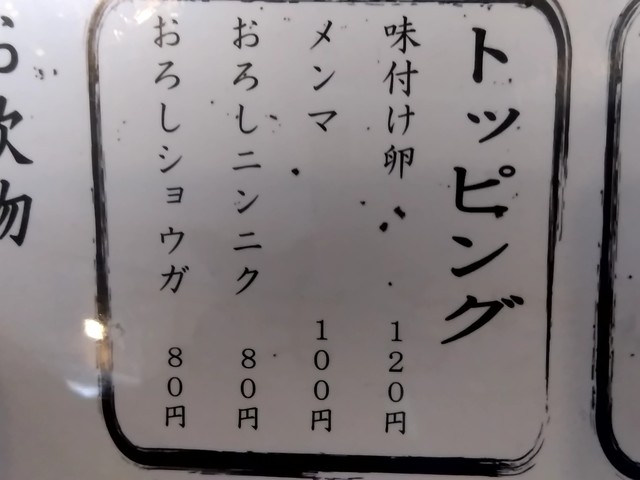 トッピング
味付け卵 120円
メンマ 100円
おろしニンニク 80円
おろしショウガ 80円
お飲物